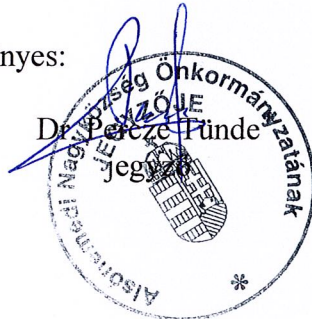 nyes:
Dr. Percze Tünde
jegyző
Alsónémedi Nagyközség Önkormányzatának
JEGYZŐJE
*